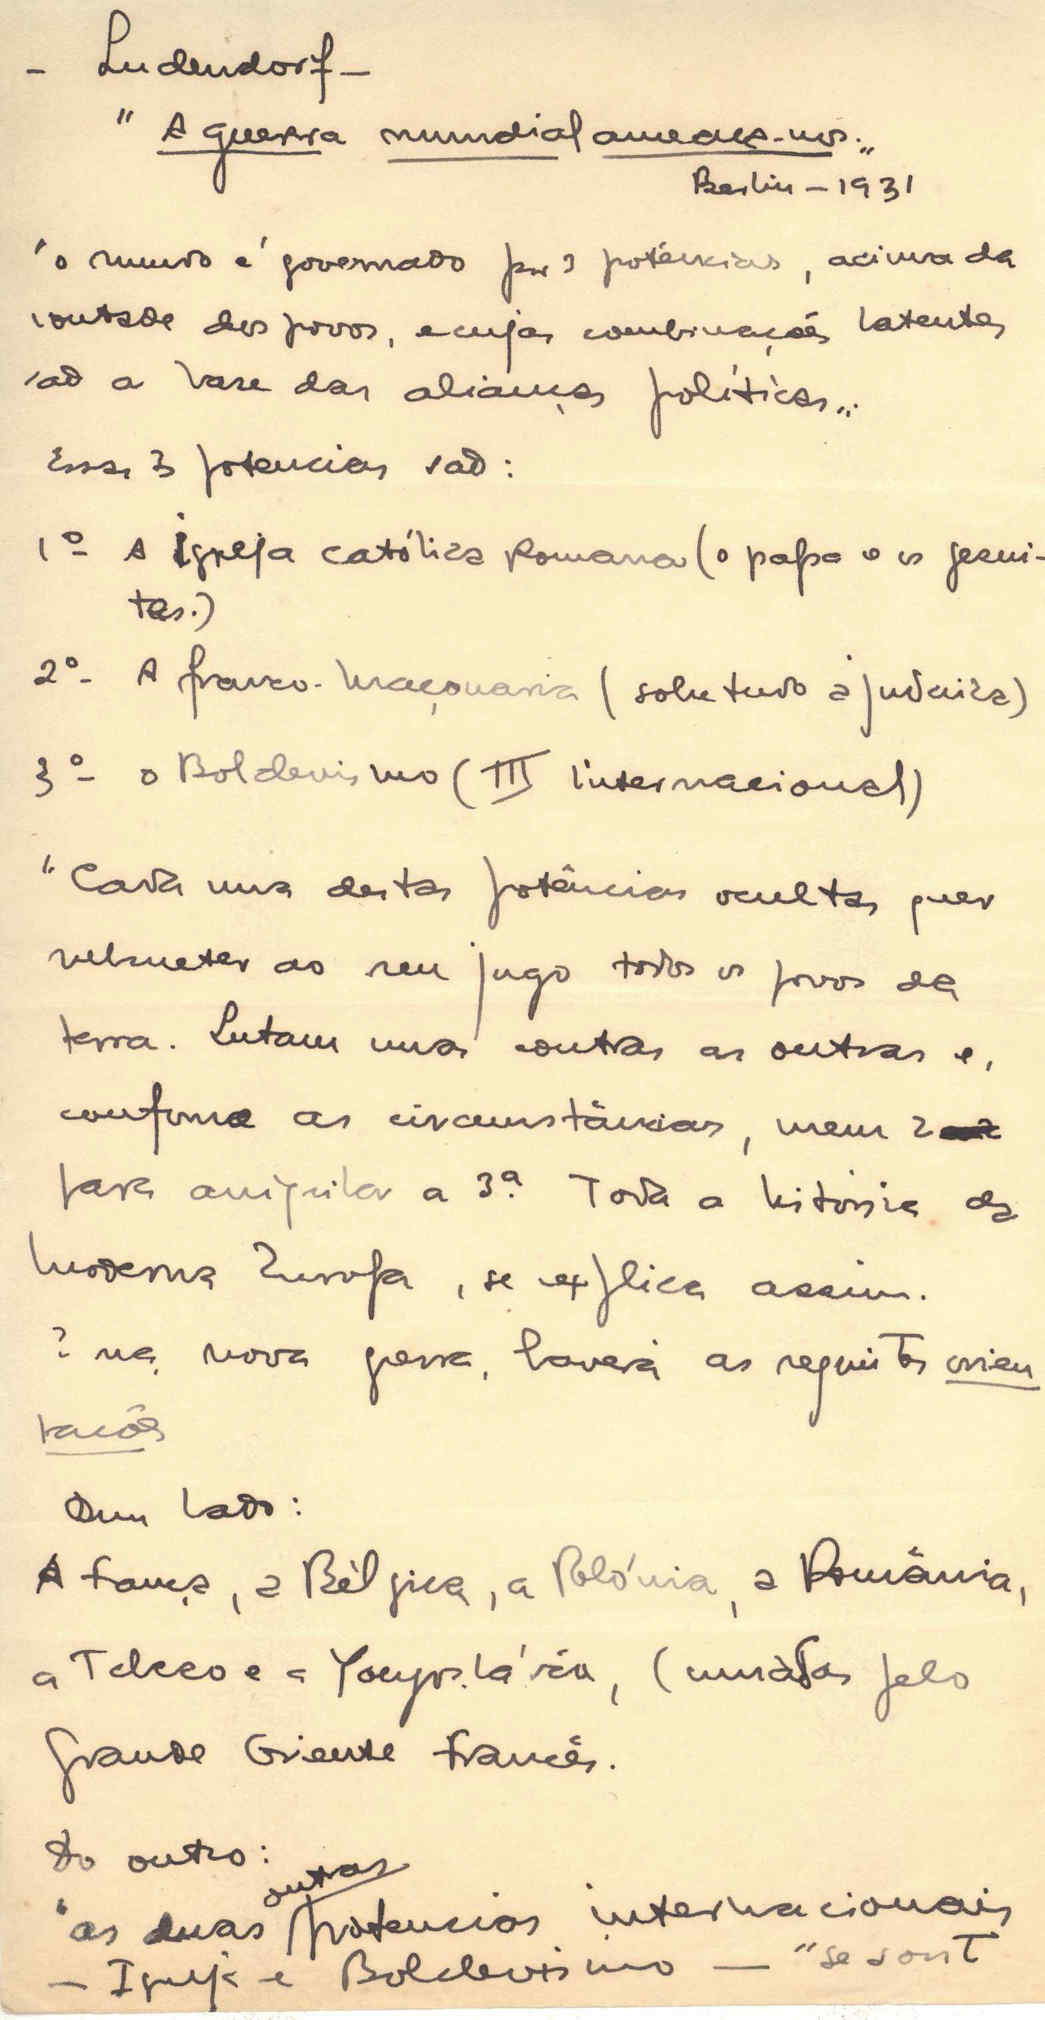 - Ludendorf -
" A guerra mundial ameaça-nos."
Berlin - 1931
"o mundo é governado por 3 potências, acima da
vontade dos povos, e cujas combinações latentes
são a base das alianças políticas".
Essas 3 potencias são:
1º - A Igreja católica Romana (o papa e os jesui-
tas.)
2º - A franco-maçonaria (sobretudo a judaica)
3º - o Bolchevismo (III internacional)
"Cada uma destas potências ocultas quer
submeter ao seu jugo todos os povos da
terra. Lutam umas contras as outras e,
conforme as circunstâncias, unem 2
para aniquilar a 3ª. Toda a história da
moderna Europa, se explica assim.
E na nova guerra, haverá as seguintes orien
tacões
Dum lado:
A França, a Bélgica, a Polónia, a Românnia,
a Tcheco e a Yougoslávia, (unidas pelo
Grande Oriente francês.
Do outro:
"as duas outras potencias internacionais
- Igreja e Bolchevismo - "se sont